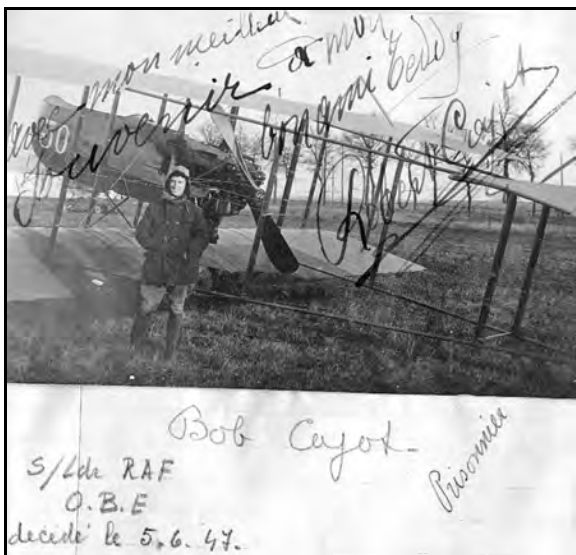 avec mon meilleur
souvenir
à mon
bon ami Teddy
Cajot
Bob Cajot
Prisonnier
S/Ldr RAF
O.B.E
décédé le 5.6.47.